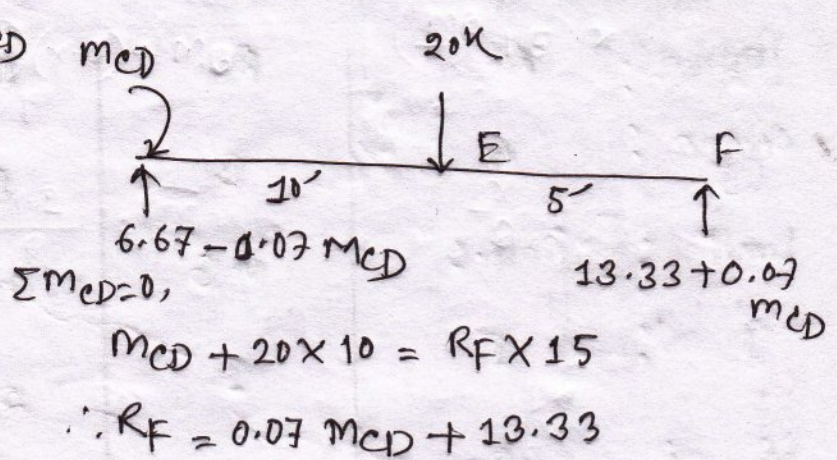 D MCD 20K
E F
10' 5'
6.67 - 0.07 MCD
13.33 + 0.07
MCD
ΣMCD=0,
MCD + 20 X 10 = RF X 15
∴ RF = 0.07 MCD + 13.33